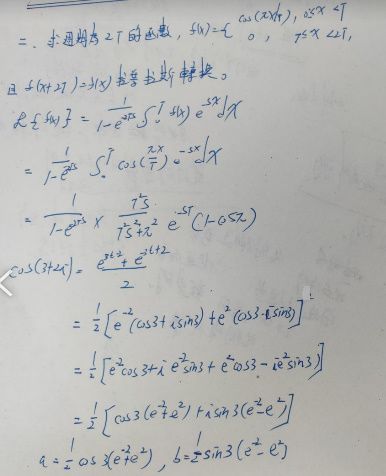 二、求周期为2T的函数, f(x)={ cos(πx/T), 0≤x<T
0, T≤x<2T,
且f(x+2T)=f(x) 拉普拉斯转换。
L{f(x)} = 1/(1-e^{-2Ts}) ∫₀ᵀ f(x) e^{-sx}dx
= 1/(1-e^{-2Ts}) ∫₀ᵀ cos(πx/T) e^{-sx}dx
= 1/(1-e^{-2Ts}) × T²s/(T²s²+π²) e^{-sT}(1-cosπ)
cos(3+2i) = (e^{3i-2} + e^{-3i+2})/2
= 1/2[e^{-2}(cos3+isin3)+e²(cos3-isin3)]
= 1/2[e^{-2}cos3+i e^{-2}sin3+e²cos3-ie²sin3)]
= 1/2[cos3(e^{-2}+e²)+isin3(e^{-2}-e²)]
a = 1/2 cos3(e^{-2}+e²), b=1/2 sin3(e^{-2}-e²)